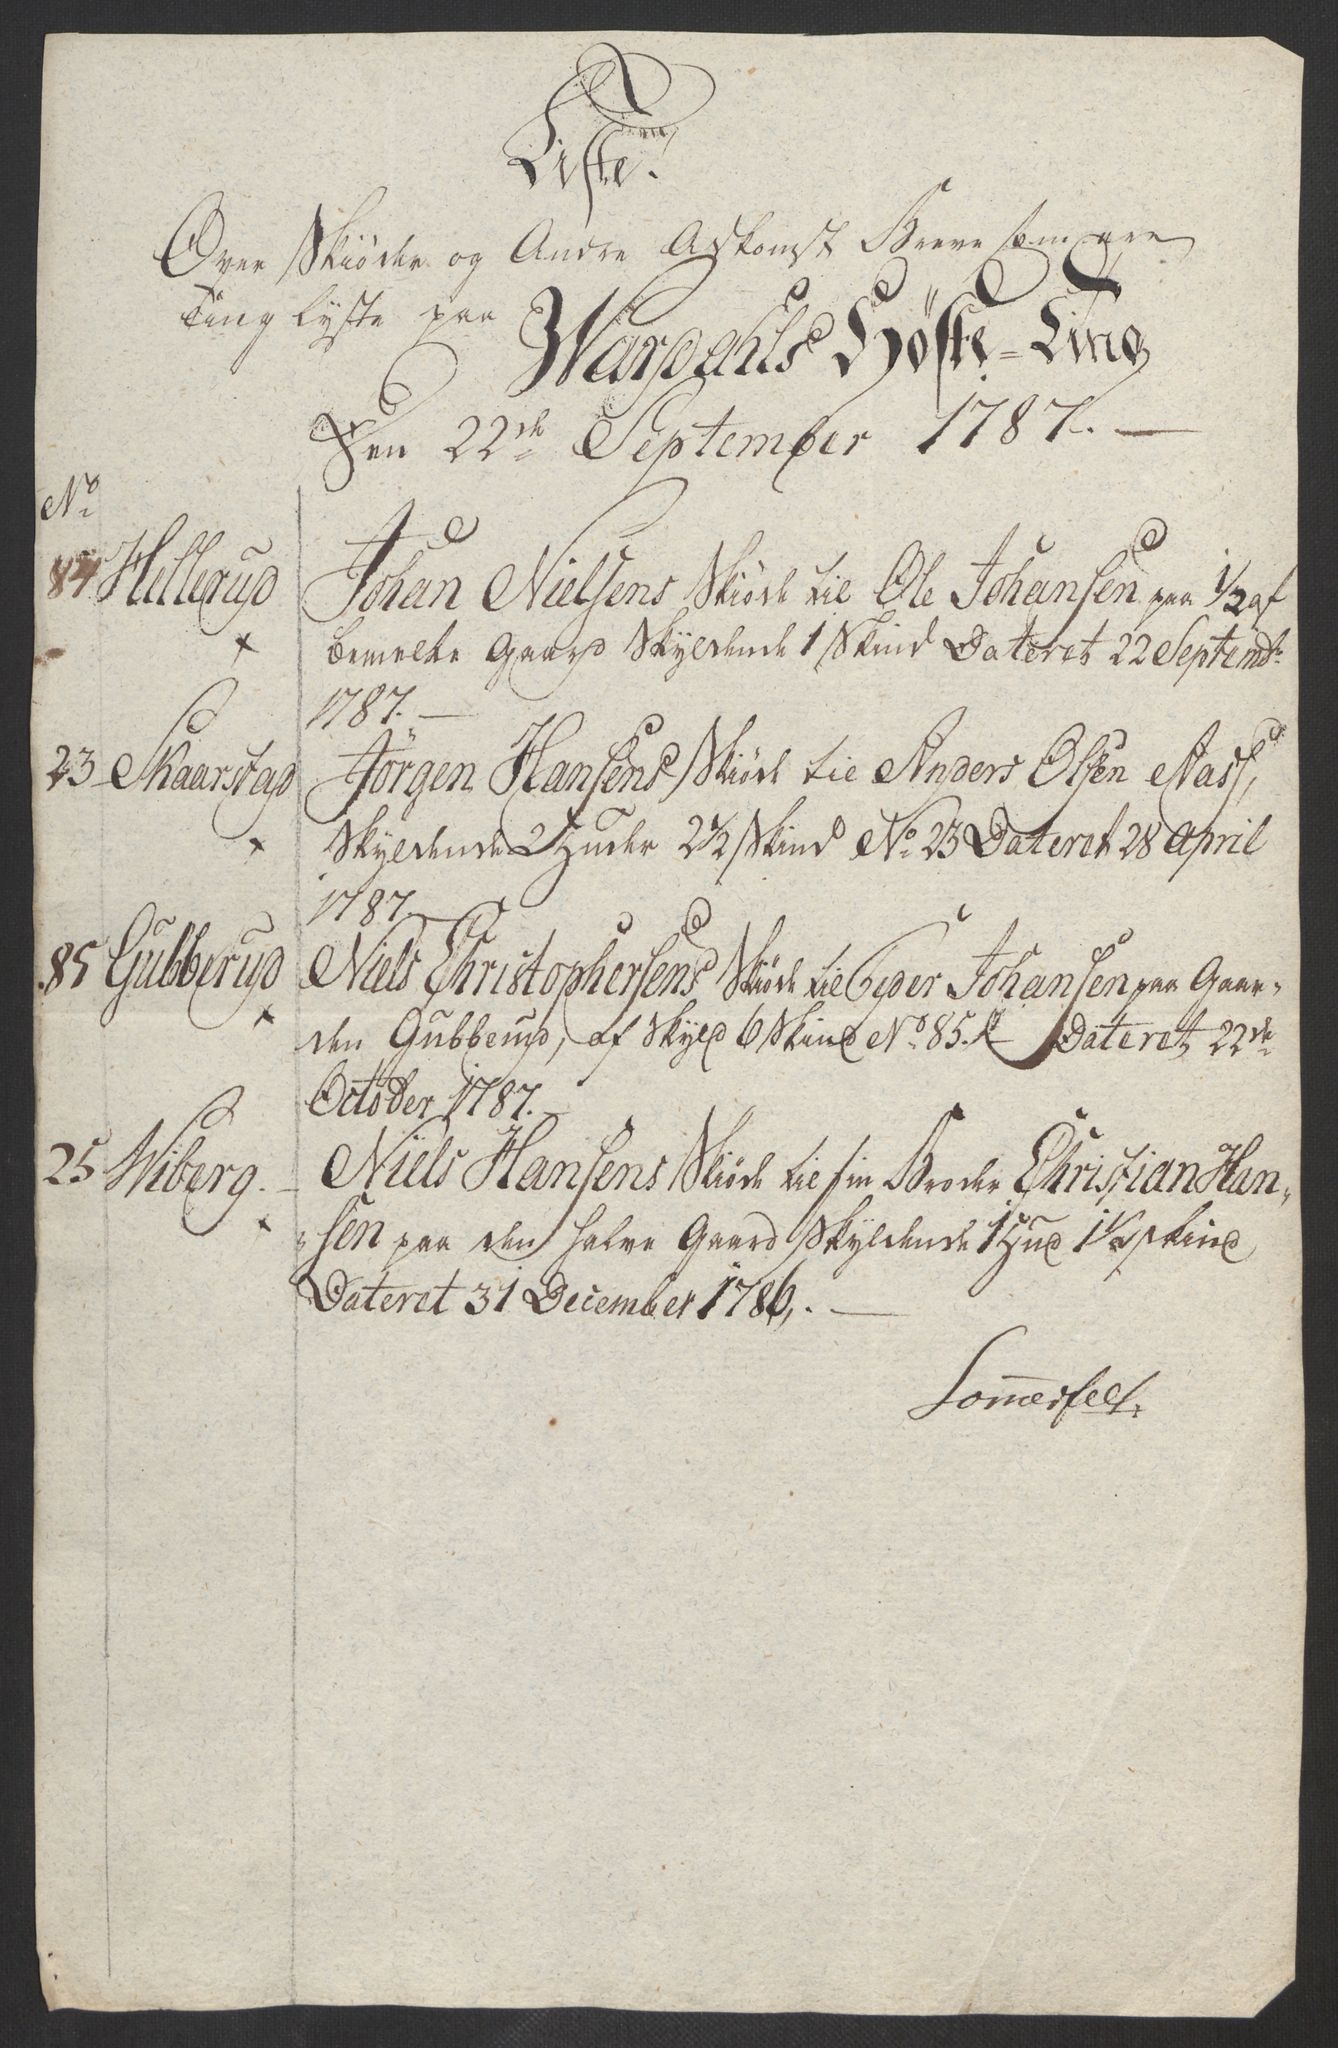 Liste
Over Skiøder og Andre Adkomst Breve som ere
Tinglyste paa Wardahls Høste-Ting
Den 22de September 1787. —
No
84 Hellerud Johan Nielsens Skiøde til Ole Johansen paa 1/2 af
bemelte Gaard Skyldende 1 Skind Dateret 22 Septembr
1787. —
23 Skaarstad Jörgen Hansens Skiöde til Anders Olsen Aass,
Skyldende 2 Huder 2 1/2 Skind No 23 Dateret 28 April
1787
85 Gubberud Niels Christophersens Skiöde til Peder Johansen paa Gaar-
den Gubberud, af Skyld 6 Skind No 85. Dateret 22de
October 1787. —
25 Wiberg. — Niels Hansens Skiöde til sin Broder Christian Han-
sen paa den halve Gaard Skyldende 1 Hud 1 1/2 skind
Dateret 31 December 1786. —
Sommerfelt.